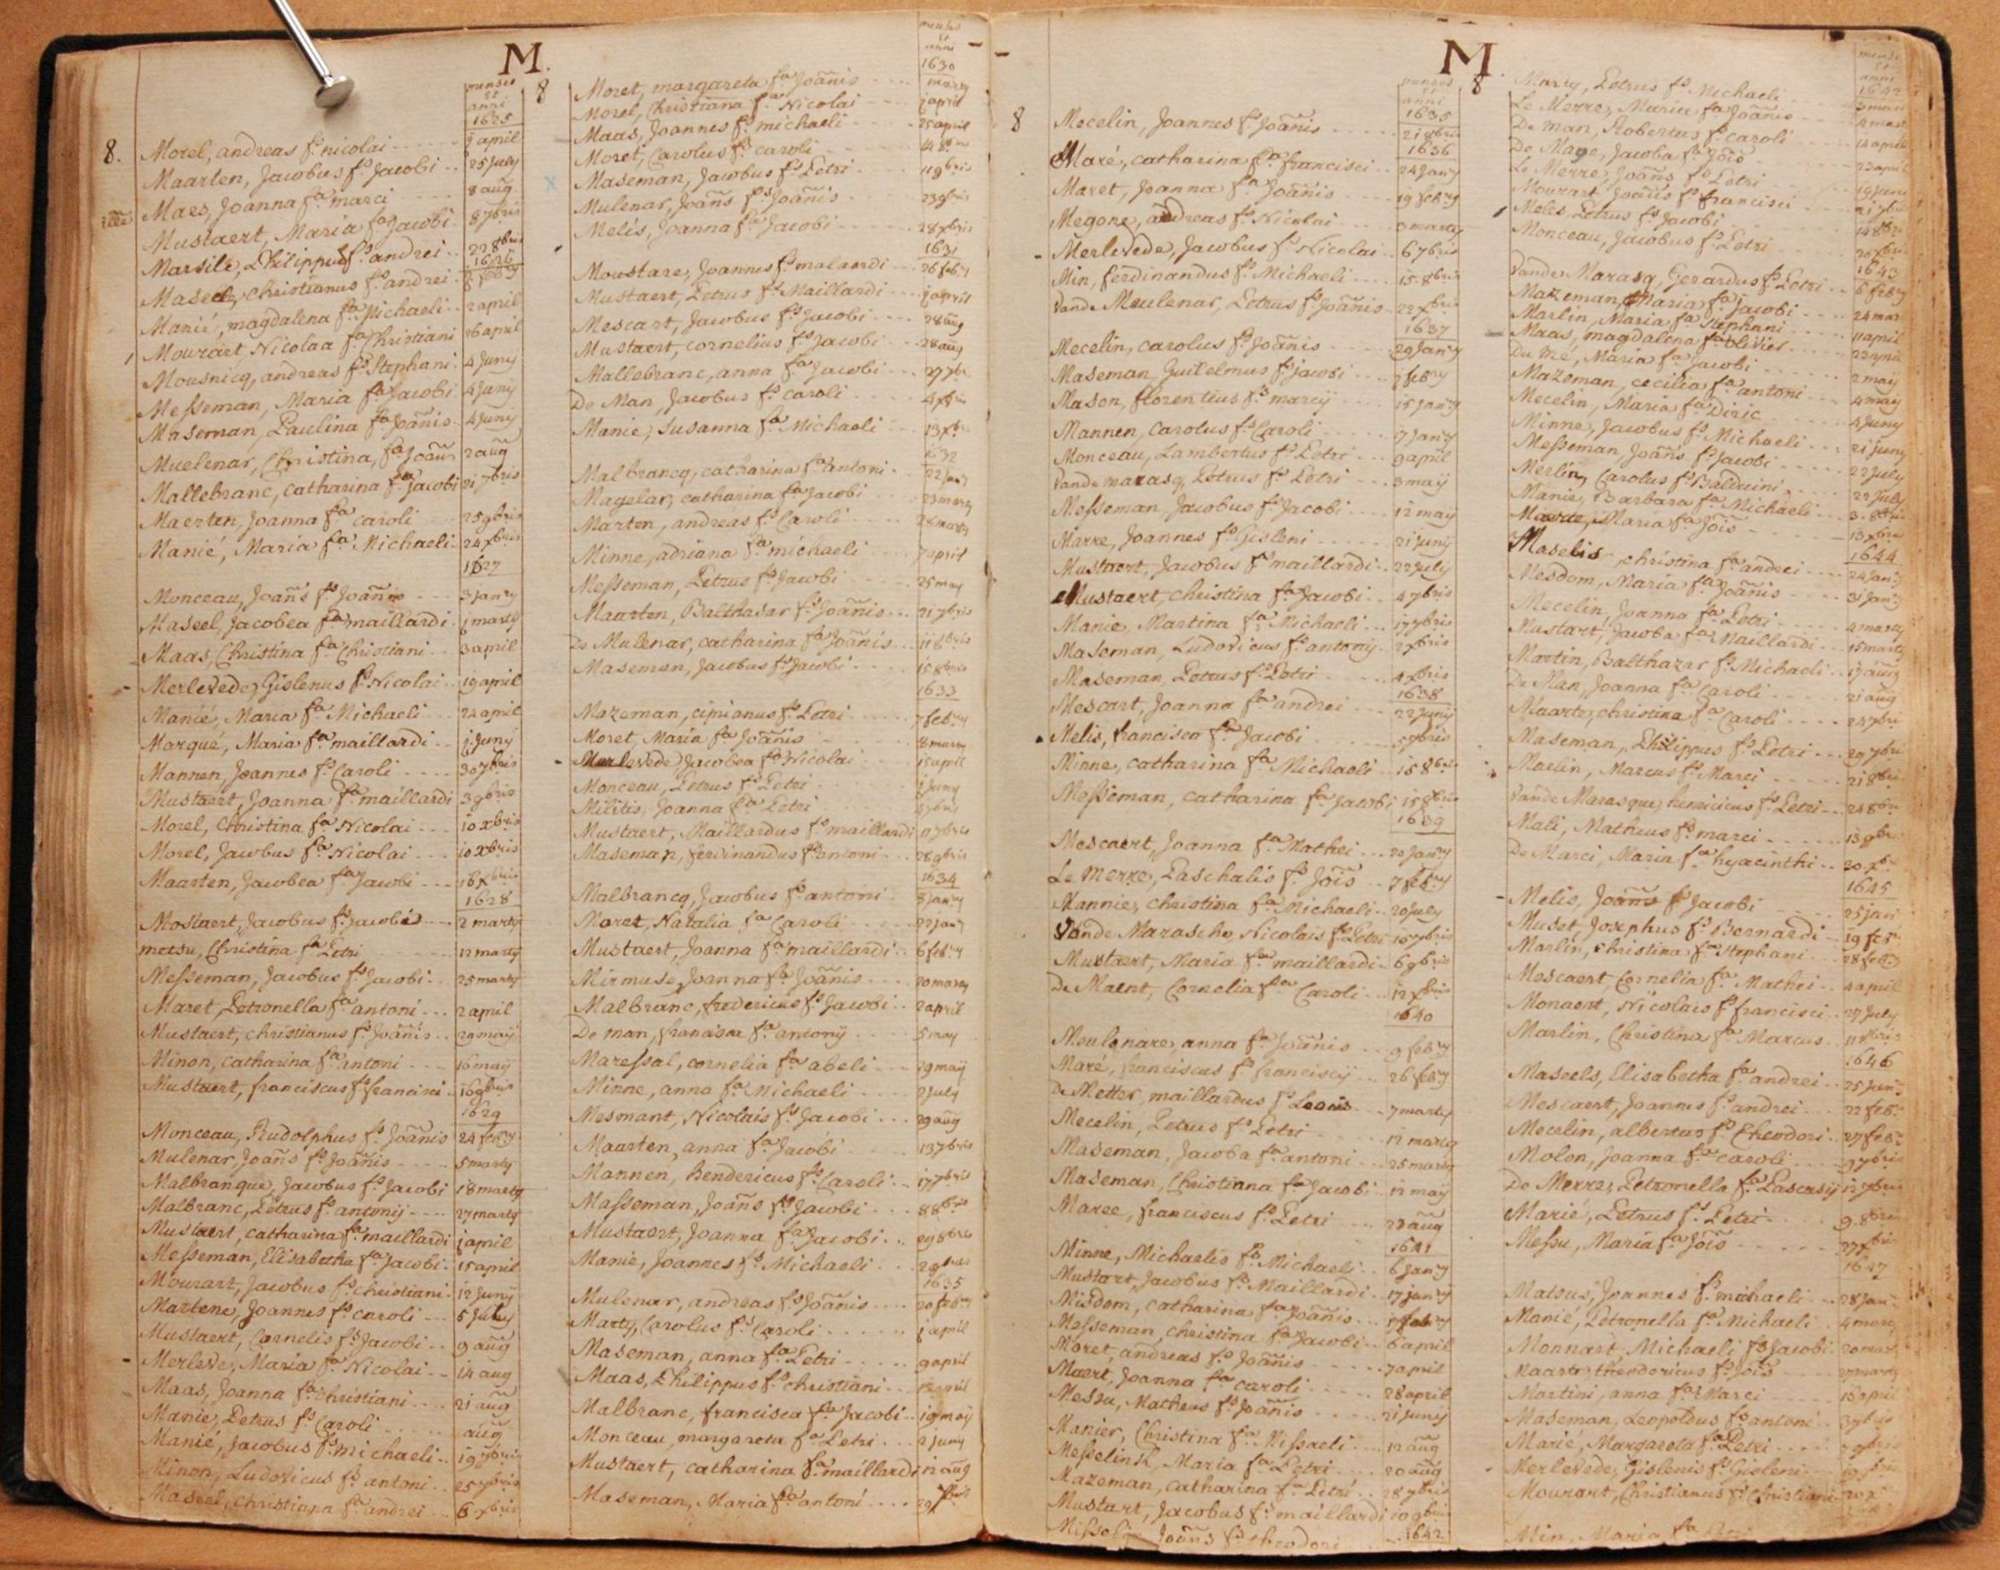 M.
mensis
et
anni
1625
8. Morel, andreas fs nicolai - - - - j april
Maarten, Jacobus fs Jacobi - - 25 July
Maes, Joanna fa marci - - - - 8 aug
Mustaert, Maria fa Jacobi 8 7bris
Marsile, Philippus fs andrei - - 22 8bris
1626
Maseel, christianus fs andrei
Manié, magdalena fa Michaeli - - 2 april
Mouraert Nicolaa fa Christiani 26 april
Mousnicq, andreas fs Stephani - 4 Juny
Messeman, Maria fa Jacobi 4 Juny
Maseman, Paulina fa Joãnis - 4 Juny
Muelenar, Christina, fa Joañ 2 aug
Mallebranc, catharina fa Jacobi 21 7bris
Maerten, Joanna fa caroli 25 9bris
Manié, Maria fa Michaeli - 24 xbris
1627
Monceau, Joañs fs Joãnis - - 3 Janry
Maseel, Jacobea fa maillardi - j marty
Maas, Christina fa Christiani - - 3 april
Merlevede, Gislenus fs Nicolai - - 19 april
Manié, Maria fa Michaeli - - 24 april
Marqué, Maria fa maillardi - - j Juny
Mannen, Joannes fs Caroli - - - - 30 7bris
Mustaert, Joanna fa maillardi 3 9bris
Morel, Christina fa Nicolai - - - 10 xbris
Morel, Jacobus fa Nicolai - - - 10 xbris
Maarten, Jacobea fa Jacobi - - - 16 xbris
1628
Mostaert, Jacobus fs Jacobi - - 2 marty
metsu, Christina fa Petri - - - - 12 marty
Messeman, Jacobus fs Jacobi - - 25 marty
Maret, Petronella fa antoni - - - 2 april
Mustaert, christianus fs Joañis - - 29 maÿ
Minon, catharina fa antoni - - - 16 may
Mustaert, franciscus fs francisci - 16 9bris
1629
Monceau, Rudolphus fs Joãnis 24 febry
Mulenar, Joañs fs Joãnis - - - - - 5 marty
Malbranque, Jacobus fs Jacobi 18 marty
Malbranc, Petrus fs antonÿ - - - - 27 marty
Mustaert, catharina fa maillardi j april
Messeman, Elisabetha fa Jacobi - 15 april
Mourart, Jacobus fs christiani - 12 Juny
Martens, Joannes fs caroli - - 5 July
Mustaert, Cornelis fs Jacobi - - 9 aug
Merleve, Maria fa Nicolai - - 14 aug
Maas, Joanna fa christiani - - - 21 aug
Manie, Petrus fs Caroli - - - - aug
Manié, Jacobus fs michaeli - - 19 7bris
Minon, Ludovicus fs antoni - - 25 7bris
Maseel, christiana fa andrei - - 6 xbris
mensis
et
anni
1630
8 Moret, margareta fa Joãnis - - - - marty
Morel, Christiana fa Nicolai - - - - 2 april
Maas, Joannes fs michaeli - - - - 25 april
Moret, Carolus fs caroli
Maseman, Jacobus fs Petri - - - - 11 9bris
Mulenar, Joañs fs Joãnis - - - - 23 9bris
Melis, Joanna fa Jacobi - - - - - 28 xbris
1631
Moustare, Joannes fs malaerdi - - - 26 feby
Mustaert, Petrus fs Maillardi - - - j april
Mescart, Jacobus fs Jacobi - - - 28 aug
Mustaert, cornelius fs Jacobi - - - 28 aug
Mallebranc, anna fa Jacobi - - - 29 7br
De Man, Jacobus fs caroli - - - - - 4 xbris
Manie, Susanna fa Michaeli - - - 13 xbr
1632
Malbrancq, catharina fa antoni - - 22 Jany
Magelar, catharina fa Jacobi - - 23 marty
Marten, andreas fs Caroli - - - - 28 marty
Minne, adriana fa michaeli - - - 7 april
Messeman, Petrus fs Jacobi - - - 25 may
Maarten, Balthasar fs Joãnis - - - 21 7bris
De Mulenar, catharina fa Joãnis - - 11 8bris
Maseman, Jacobus fs Jacobi - - - - 15 8bris
1633
Mazeman, cipianus fs Petri - - - - - 7 febry
Moret, Maria fa Joãnis - - - 8 marty
Merlevede Jacobea fa Nicolai - - - 15 april
Monceau, Petrus fs Petri - - - - j Juny
Militis, Joanna fa Petri
Mustaert, Maillardus fs maillardi 17 7bris
Maseman, ferdinandus fs antoni - - - 28 9bris
1634
Malbrancq, Jacobus fs antoni - - 8 Jany
Moret, Natalia fa Caroli - - - - 22 Jany
Mustaert, Joanna fa maillardi - - 6 febry
Mirmuse Joanna fa Joãnis - - - - 20 marty
Malbranc, fredericus fs Jacobi - - 2 april
De man, francisca fa antonÿ - - - - 5 may
Maressal, cornelia fa abeli - - - - 29 maÿ
Minne, anna fa Michaeli - - - - - 2 July
Mesmant, Nicolais fs Jacobi - - - 29 aug
Maarten, anna fa Jacobi - - - - 13 7bris
Mannen, Bendericus fs Caroli - - 17 7bris
Masseman, Joañs fs Jacobi - - - 8 8bris
Mustaert, Joanna fa Jacobi - - - 29 8bris
Manie, Joannes fs Michaeli - - - 2 9bris
1635
Mulenar, andreas fs Joãnis - - - - 20 febry
Marty, Carolus fs Caroli - - - - - - j april
Maseman, anna fa Petri - - - - - 9 april
Maas, Philippus fs christiani - - - 12 april
Malbranc, francisca fa Jacobi - - 19 maÿ
Monceau, margareta fa Petri - - - 2 Juny
Mustaert, catharina fa maillardi 12 aug
Maseman, Maria fa antoni - - - -
M.
mensis
et
anni
1635
8 Mecelin, Joannes fs Joãnis - - - - - 21 8bris
1636
Maré, catharina fa francisci - - - 24 Jany
Maret, Joanna fa Joãnis - - - - 19 febry
Megone, andreas fs Nicolai - - - - 3 marty
Merlevede, Jacobus fs Nicolai - - 6 7bris
Min, ferdinandus fs Michaeli - - - 15 8bris
Vande Meulenar, Petrus fs Joãnis - - 22 xbris
1637
Mecelin, carolus fs Joãnis - - - - - 29 Janry
Maseman Guilelmus fs Jacobi - - - 2 febry
Mason, florentius fs marcÿ - - - - 15 Janry
Mannen, Carolus fs Caroli - - - - - 7 Janry
Monceau, Lambertus fs Petri - - - 9 april
Vande marasq, Petrus fs Petri - - - 3 maÿ
Messeman, Jacobus fs Jacobi - - - 12 may
Marre, Joannes fs Gisleni - - - - - 21 Juny
Mustaert, Jacobus fs maillardi - - 22 July
Mustaert, christina fa Jacobi - - - 4 7bris
Manie, Martina fa Michaeli - - - 17 7bris
Maseman, Ludovicus fs antonÿ - - 2 xbris
Maseman Petrus fs Petri - - - 4 xbris
1638
Mescart, Joanna fa andrei - - - - 22 Juny
Melis, francisca fa Jacobi - - - - 5 9bris
Minne, catharina fa Michaeli - - 15 8bris
Messeman, catharina fa Jacobi 15 8bris
1639
Mescaert, Joanna fa Mathei - - - 22 Janry
Le Merre, Paschalis fs Joĩs - - 7 febry
Mannie, christina fa Michaeli - - 20 July
Vande Marasche, Nicolais fs Petri 10 7bris
Mustaert, Maria fa maillardi - - 6 9bris
De Maent, Cornelia fa Caroli - - - 12 xbris
1640
Meulenare, anna fa Joãnis - - - 9 febry
Maré, franciscus fs franciscÿ - - - 26 febry
De Metter, maillardus fs Leonis - - 7 marty
Mecelin, Petrus fs Petri - - - - 12 marty
Maseman, Jacoba fa antoni - - - 25 marty
Maseman, Christiana fa Jacobi - - 12 maÿ
Maree, franciscus fs Petri - - - - 29 aug
1641
Minne, Michaelis fs Michaeli - - - 6 Jany
Mustart, Jacobus fs Maillardi - - 17 Janry
Misdom, catharina fa Joãnis - - - febry
Messeman, christina fa Jacobi - - 6 april
Moret, andreas fs Joãnis - - - - - 7 april
Maert, Joanna fa caroli - - - - - 28 april
Messu, Matheus fs Joãnis - - - - - 21 Juny
Manier, Christina fa Missaeli - - - 12 aug
Messelinck, Maria fa Petri - - - - 20 aug
Mazeman, catharina fa Petri - - 28 7bris
Mustart, Jacobus fs maillardi - 10 9bris
1642
Joañs fs theodori
mensis
et
anni
1642
8 Marty, Petrus fs Michaeli - - -
Le Merre, Maria fa Joãnis - - - -
De man, Robertus fs caroli - - - 14 april
De Mage, Jacoba fa Joĩs - - - - 23 april
Le Merre, Joañs fs Petri - - - - 19 Juny
Mourart Joãnis fs francisci - - - 21 7bris
Melis Petrus fs Jacobi - - - -
Monceau, Jacobus fs Petri - - - - 20 xbris
1643
Vander Marasq, Gerardus fs Petri - - 6 febry
Mazeman, Maria fa Jacobi - - - - 24 mar
Marlin, Maria fa Stephani - - - - 11 april
Maas, magdalena fa olivier - - - - 22 april
Du Mé, Maria fa Jacobi - - - - - 2 maÿ
Mazeman, cecilia fa antoni - - - 4 maÿ
Mecelin, Maria fa Diric - - - - - 4 Juny
Minne, Jacobus fs Michaeli - - - 21 Juny
Messeman, Joañs fs Jacobi - - - - 22 July
Merlin, Carolus fs Balduini - - - 22 July
Manie, Barbara fa Michaeli - - 3 - 8bris
Maerte, Maria fa Joĩs - - - - - 13 xbris
1644
Maselis christina fa andrei - - - - 24 Jany
Mesdom, Maria fa Joãnis - - - - - 31 Jany
Mecelin, Joanna fa Petri - - - - 4 marty
Mustart, Jacoba fa Maillardi - - - 15 marty
Martin, Balthazar fs Michaeli - - 17 aug
De Man, Joanna fa Caroli - - - - 21 aug
Maarte, christina fa Caroli - - - - 24 7bri
Maseman, Philippus fs Petri - - 29 7bri
Maelin, Marcus fs Marci - - - - 21 8bri
Vande Marasque, henricus fs Petri - - 24 8bri
Mali, Matheus fs marci - - - - - 13 9bris
De Marci, Maria fa hyacinthi - - - 20 xbr
1645
Melis, Joañs fs Jacobi - - - - - 25 jan
Muset, Josephus fs Bernardi - - 19 feb
Marlin, christina fa Stephani - - 28 feb
Mescaert Cornelia fa Mathei - - 4 april
Monaert, Nicolais fs francisci - - 27 July
Marlin, Christina fa Marcus - - - 11 8bris
1646
Maseels, Elisabetha fa andrei - - 25 Jan
Mescaert, Joannes fs andrei - - - 22 feb
Mecelin, albertus fs theodori - - 27 feb
Molon, joanna fa caroli - - - - 9 7bris
De Merre, Petronella fa Pascasÿ 12 7bris
Marié, Petrus fs Petri - - - - - 9 8bris
Messu, Maria fa Joĩs - - - - - 27 xbris
1647
Matsus, Joannes fs michaeli - - - 28 Jan
Manié, Petronella fa Michaeli - - 4 marty
Monnart, Michaeli fs Jacobi - - 20 mart
Maarte, theodoricus fs Joĩs - - - 27 marty
Martini, anna fa Marci - - - - 16 april
Maseman, Leopoldus fs antoni - - 3 7bris
Marié, Margareta fa Petri - - - -
Merlevede, Gislenis fs Gisleni - - -
Mourart, Christianus fs Christiani
Min, Maria fa